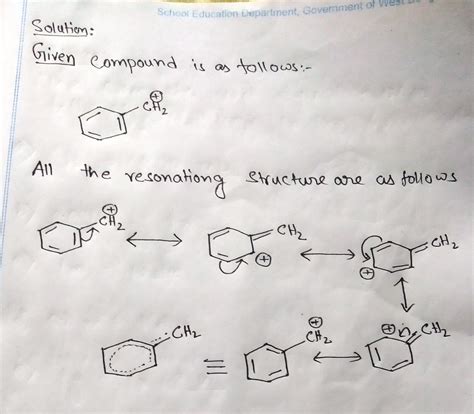 School Education Department, Government of West
Solution:
Given compound is as follows:-
⊕
CH2
All the resonationg structure are as follows
⊕
CH2
CH2
⊕
CH2
⊕
⊕
CH2
CH2
⊕
CH2